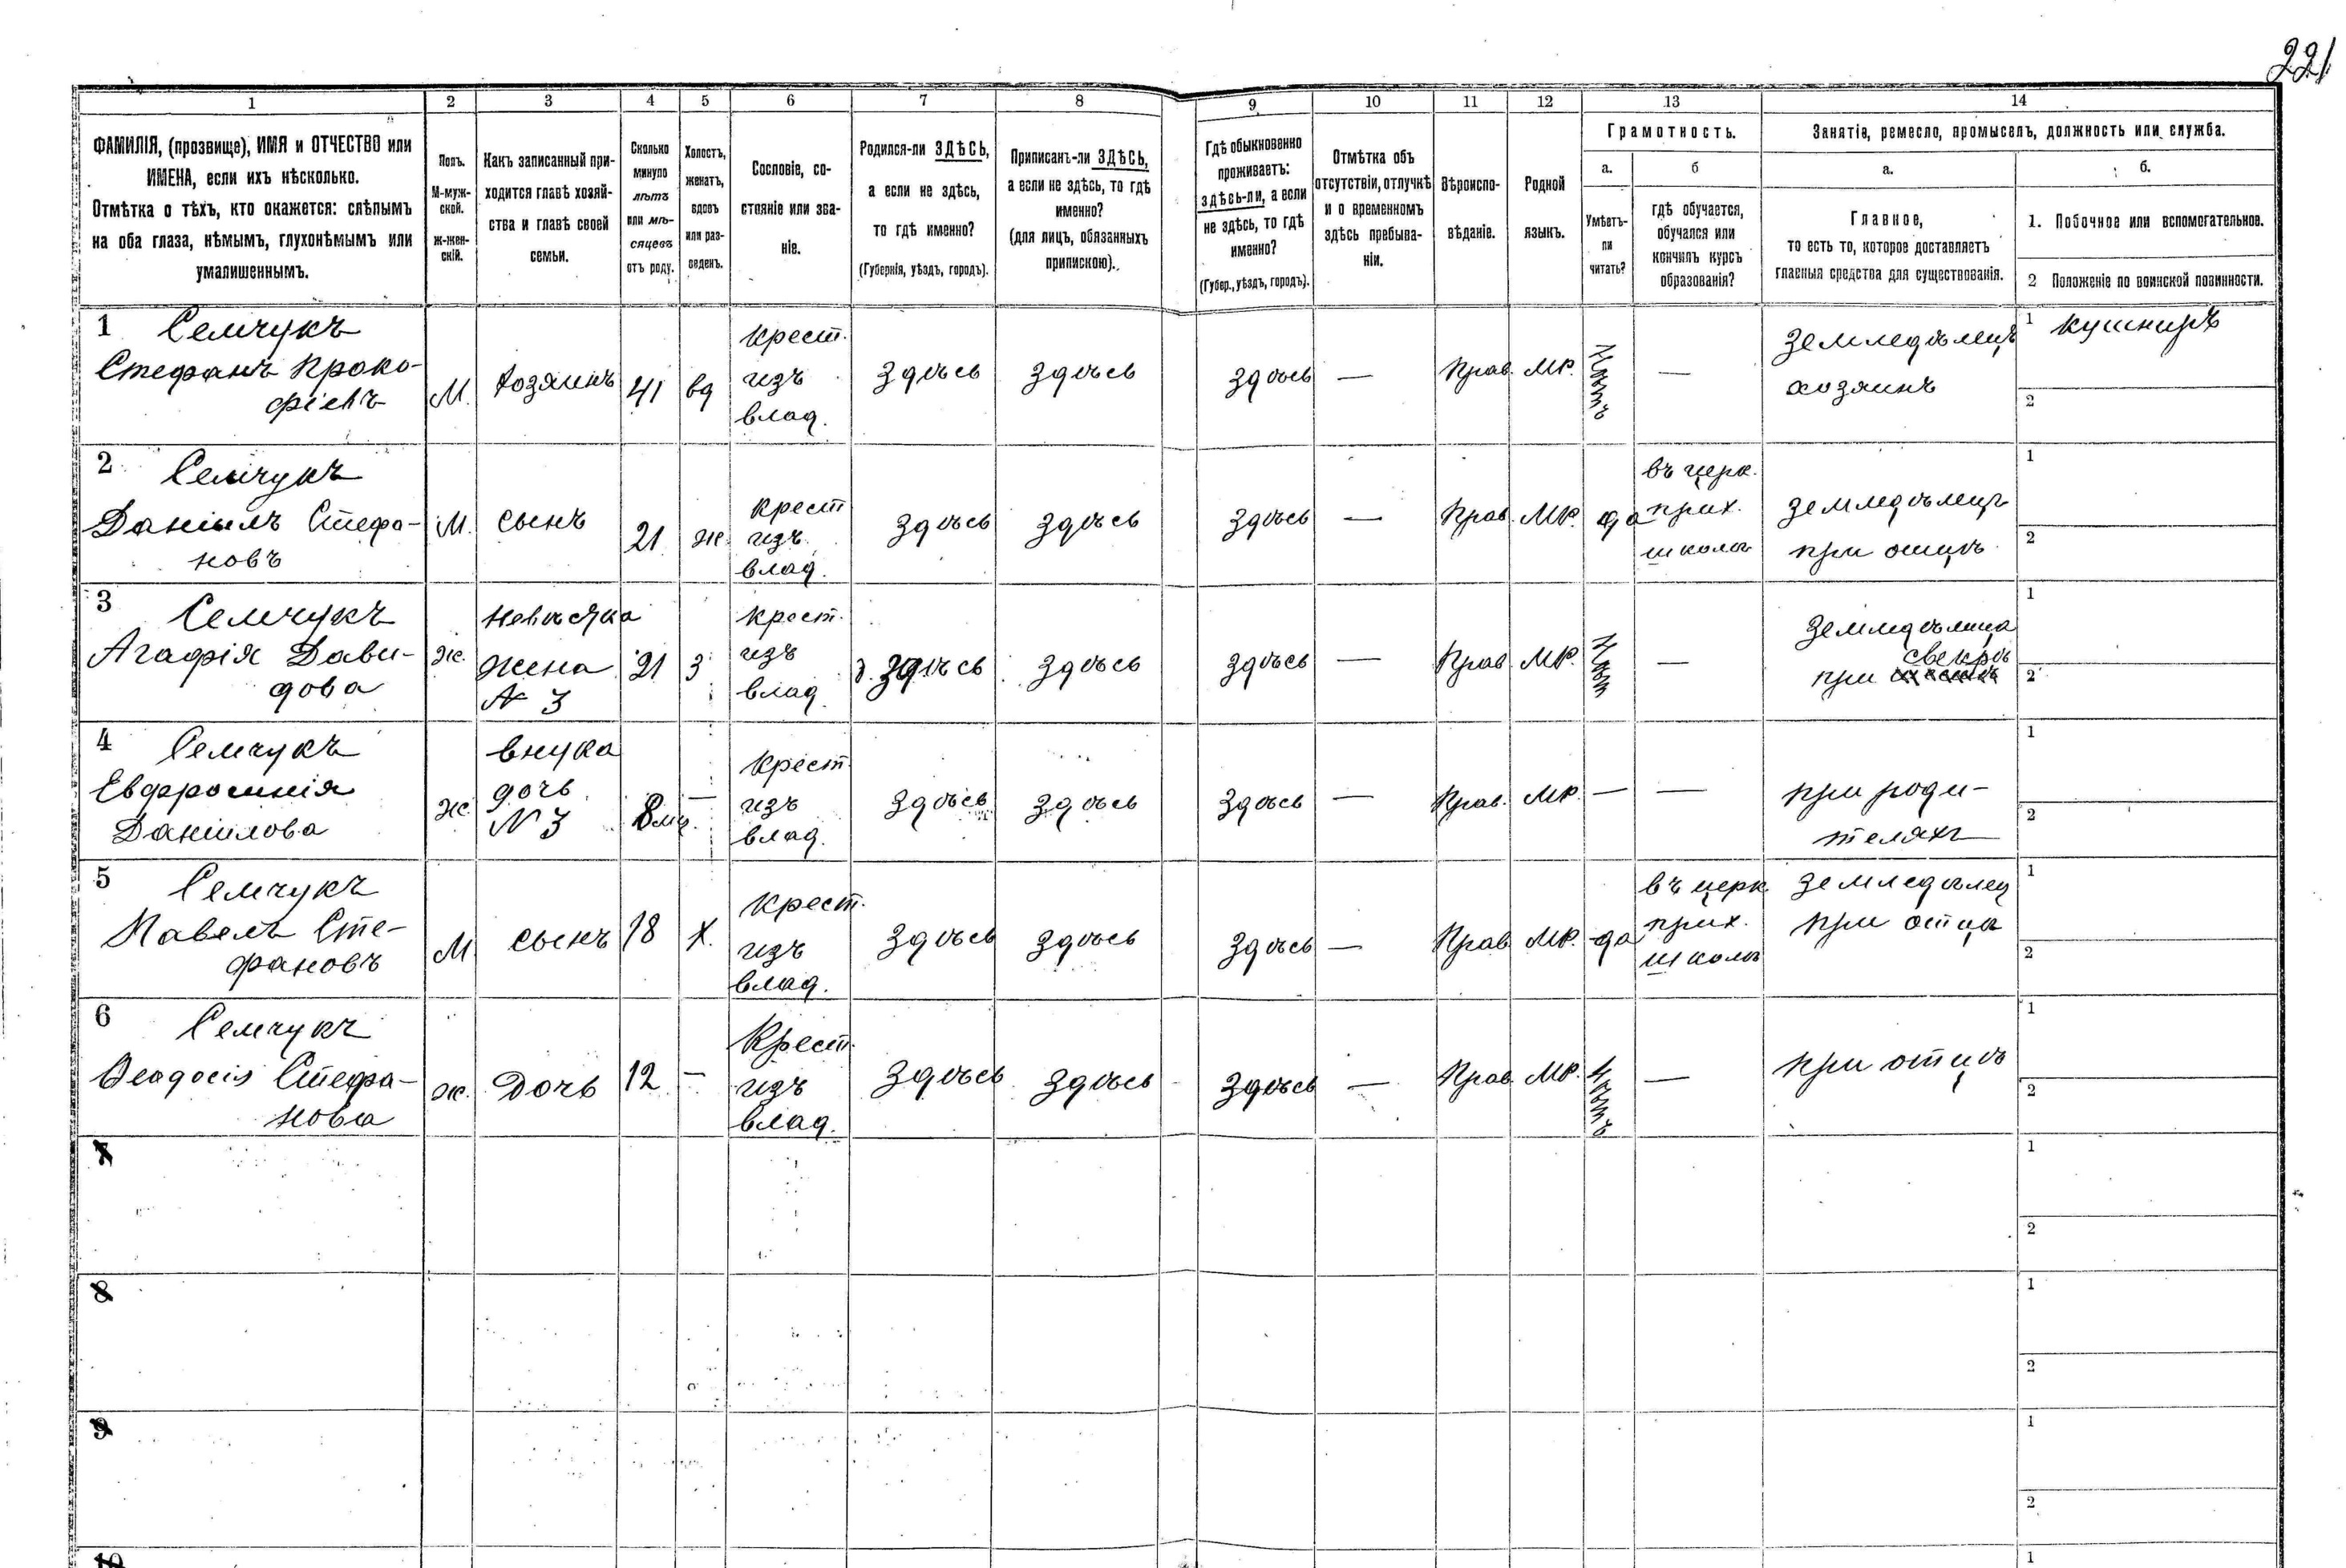 221
1 2 3 4 5 6 7 8 9 10 11 12 13 14
ФАМИЛІЯ, (прозвище), ИМЯ и ОТЧЕСТВО или
ИМЕНА, если ихъ нѣсколько.
Отмѣтка о тѣхъ, кто окажется: слѣпымъ
на оба глаза, нѣмымъ, глухонѣмымъ или
умалишеннымъ.
Полъ.
М-муж-
ской.
ж-жен-
скій.
Какъ записанный при-
ходится главѣ хозяй-
ства и главѣ своей
семьи.
Сколько
минуло
лѣтъ
или мѣ-
сяцевъ
отъ роду.
Холостъ,
женатъ,
вдовъ
или раз-
веденъ.
Сословіе, со-
стояніе или зва-
ніе.
Родился-ли ЗДѢСЬ,
а если не здѣсь,
то гдѣ именно?
(Губернія, уѣздъ, городъ).
Приписанъ-ли ЗДѢСЬ,
а если не здѣсь, то гдѣ
именно?
(для лицъ, обязанныхъ
припискою).
Гдѣ обыкновенно
проживаетъ:
здѣсь-ли, а если
не здѣсь, то гдѣ
именно?
(Губер., уѣздъ, городъ).
Отмѣтка объ
отсутствіи, отлучкѣ
и о временномъ
здѣсь пребыва-
ніи.
Вѣроиспо-
вѣданіе.
Родной
языкъ.
Грамотность.
а.
Умѣетъ-
ли
читать?
б
гдѣ обучается,
обучался или
кончилъ курсъ
образованія?
Занятіе, ремесло, промыселъ, должность или служба.
а.
Главное,
то есть то, которое доставляетъ
главныя средства для существованія.
б.
1. Побочное или вспомогательное.
2 Положеніе по воинской повинности.
1 Семчукъ
Стефанъ Проко-
фіевъ
М.
Хозяинъ
41
вд
крест.
изъ
влад.
здѣсь
здѣсь
здѣсь
—
Прав.
МР.
Нѣтъ
—
Земледѣлецъ
хозяинъ
1 кушниръ
2
2 Семчукъ
Даніилъ Стефа-
новъ
М.
сынъ
21
ж.
крест
изъ
влад.
здѣсь
здѣсь
здѣсь
—
Прав.
МР.
да
въ церк.
прих.
школѣ
земледѣлецъ
при отцѣ
1
2
3 Семчукъ
Агафія Дави-
дова
ж.
невѣстка
жена
№ 3
21
з
крест.
изъ
влад
здѣсь
здѣсь
здѣсь
—
Прав
МР.
Нѣт
—
земледѣлица
свекрѣ
при
1
2
4 Семчукъ
Евфросинія
Даніилова
ж.
внука
дочь
№ 3
8 мц.
—
крест.
изъ
влад.
здѣсь
здѣсь
здѣсь
—
Прав.
МР.
—
—
при роди-
теляхъ
1
2
5 Семчукъ
Павелъ Сте-
фановъ
М
сынъ
18
х.
крест.
изъ
влад.
здѣсь
здѣсь
здѣсь
—
Прав
МР.
да
въ церк
прих.
школѣ
земледѣлец
при отца
1
2
6 Семчукъ
Ѳеодосія Стефа-
нова
ж.
Дочь
12
—
Крест.
изъ
влад.
здѣсь
здѣсь
здѣсь
—
Прав
МР.
Нѣтъ
—
при отцѣ
1
2
7
1
2
8
1
2
9
1
2
10
1